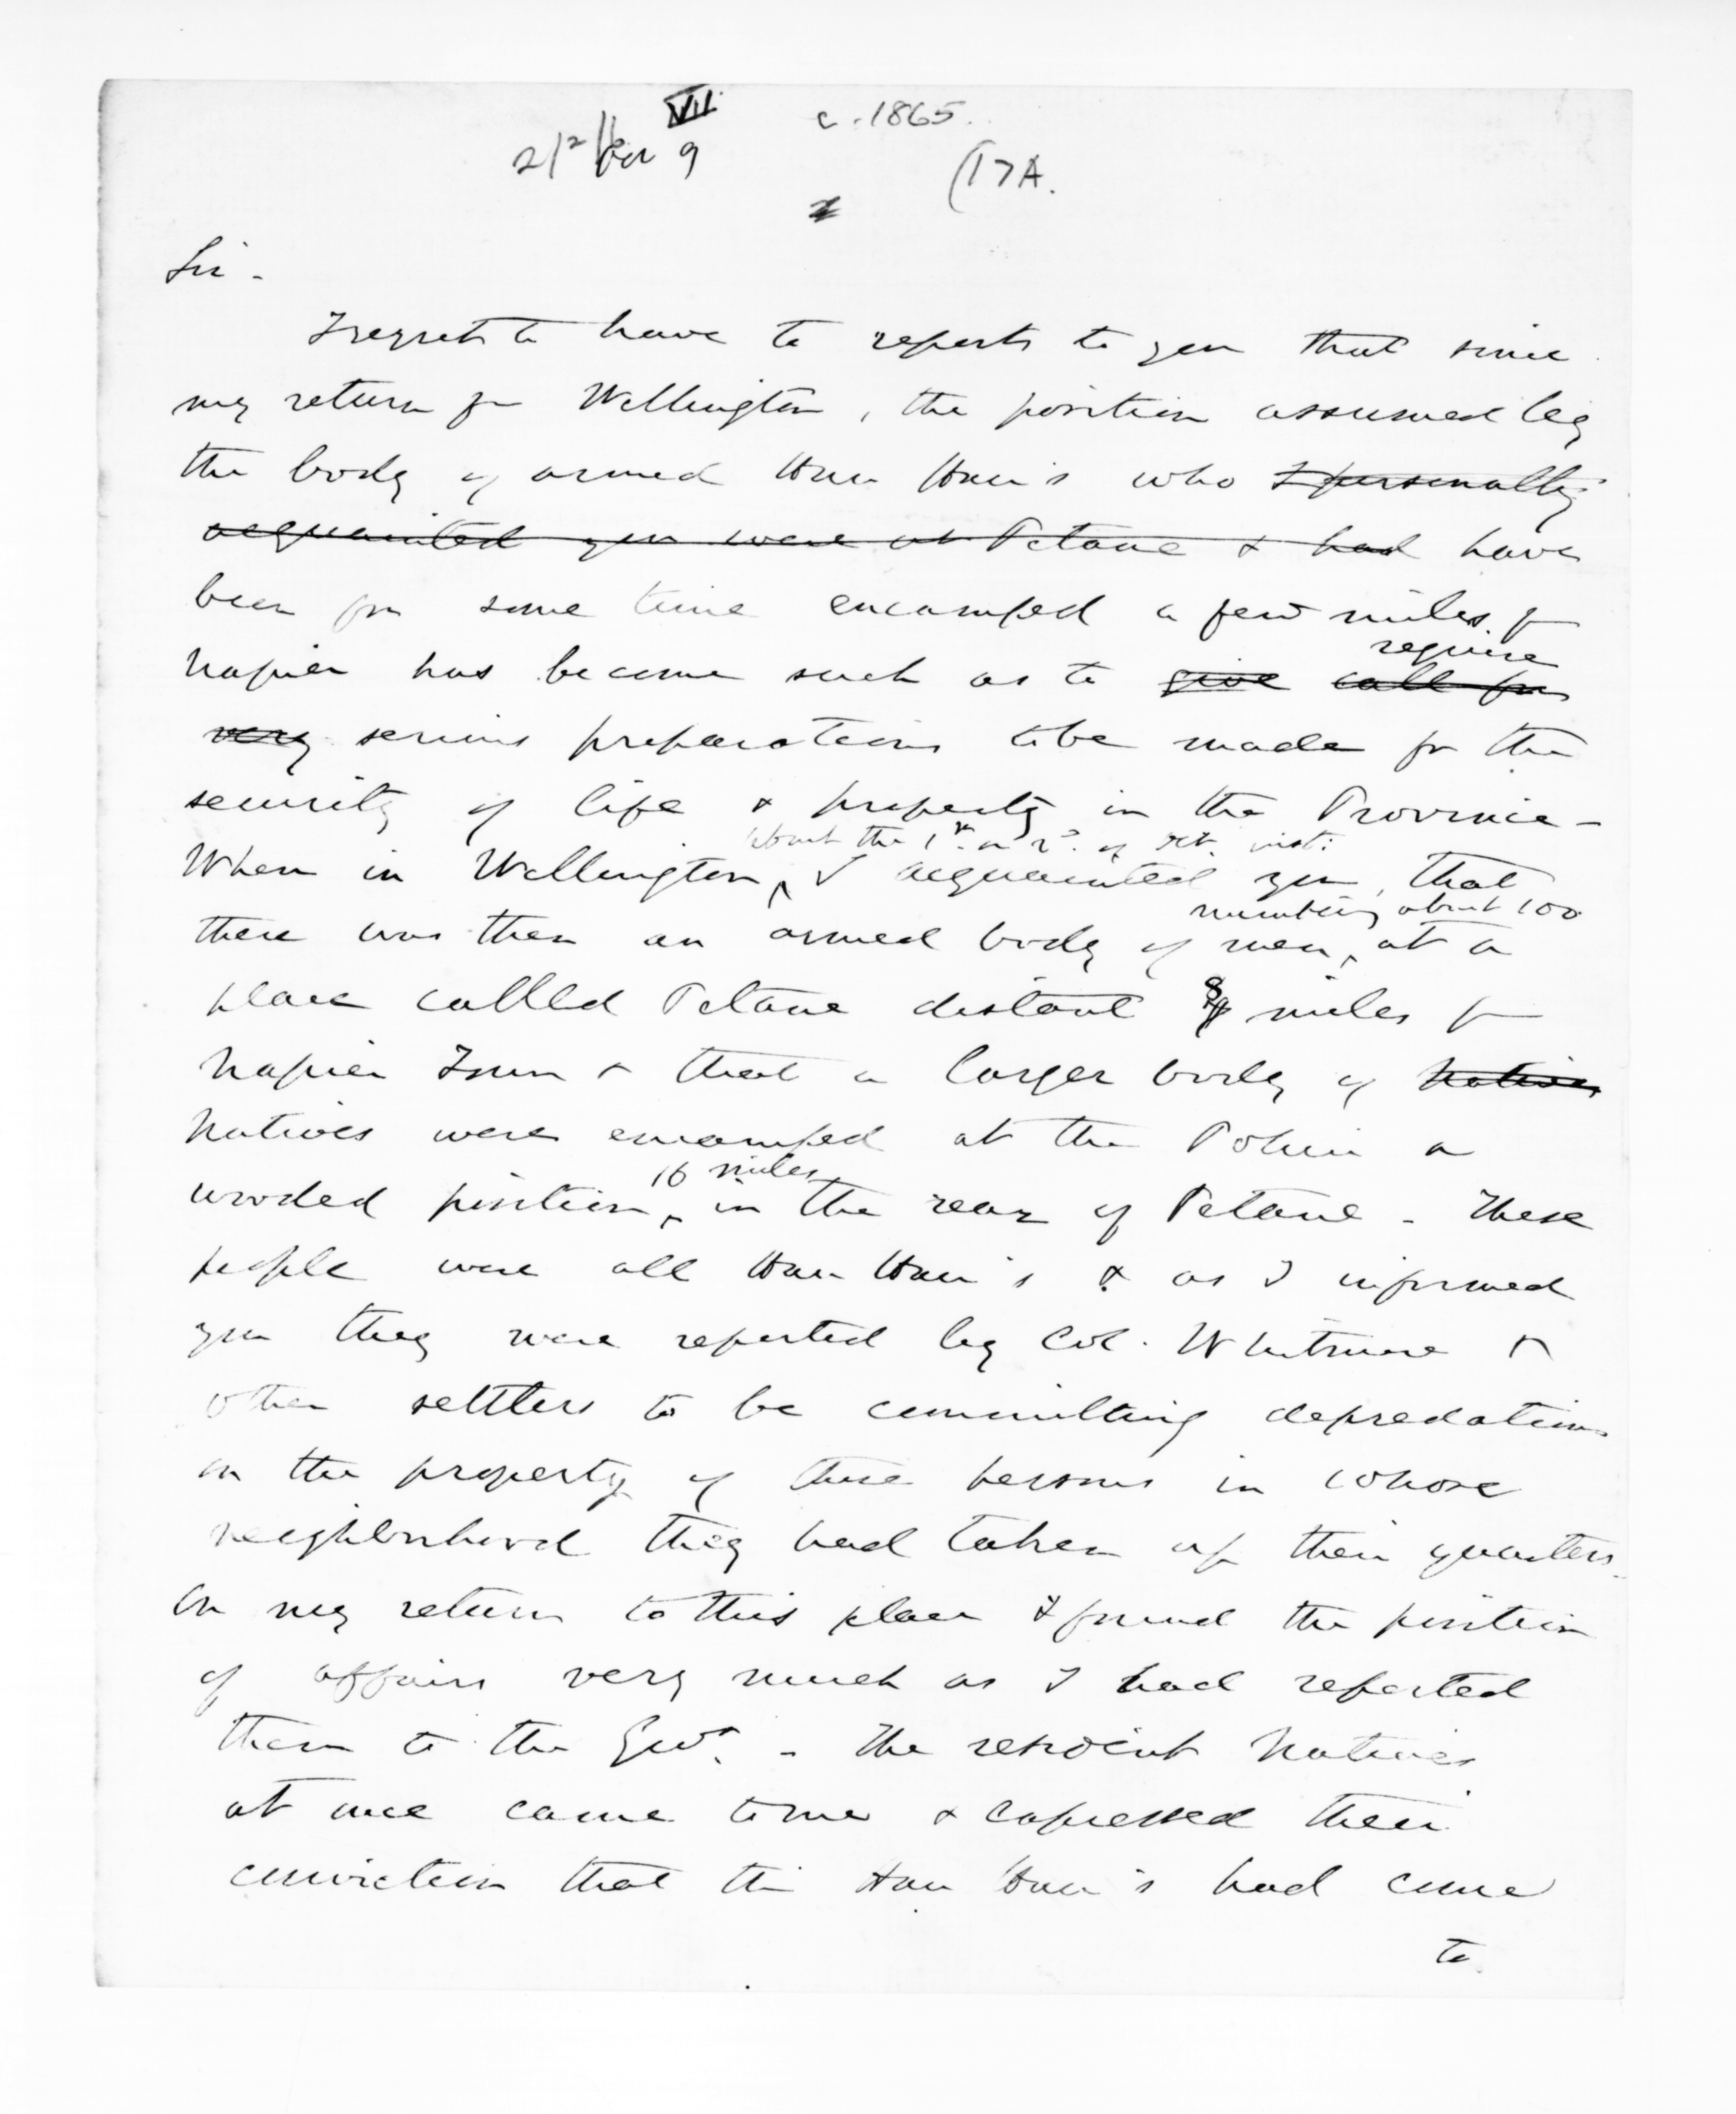 VII c. 1865.
9 (17A.
Sir -
I regret to have to report to you that since
my return fm Wellington, the position assumed by
the body of armed Hau Hau's who I personally
acquainted you were at Petane & had have
been for some time encamped a few miles fm
require
Napier has become such as to give call for
very serious preparations to be made for the
security of life & property in the Province -
about the 1st or 2d of Oct. inst:
When in Wellington, I acquainted you, that
numbering about 100
there was then an armed body of men, at a
place called Petane distant 8 miles fm
Napier Town & that a larger body of Natives
Natives were encamped at the Pohui a
16 miles
wooded position, in the rear of Petane - These
people were all Hau Hau's & as I informed
you they were reported by Col. Whitmore &
other settlers to be committing depredations
on the property of those persons in whose
neighborhood they had taken up their quarters.
On my return to this place I found the position
of affairs very much as I had reported
them to the Govt. - The resident Natives
at once came to me & expressed their
conviction that the Hau Hau's had come
to